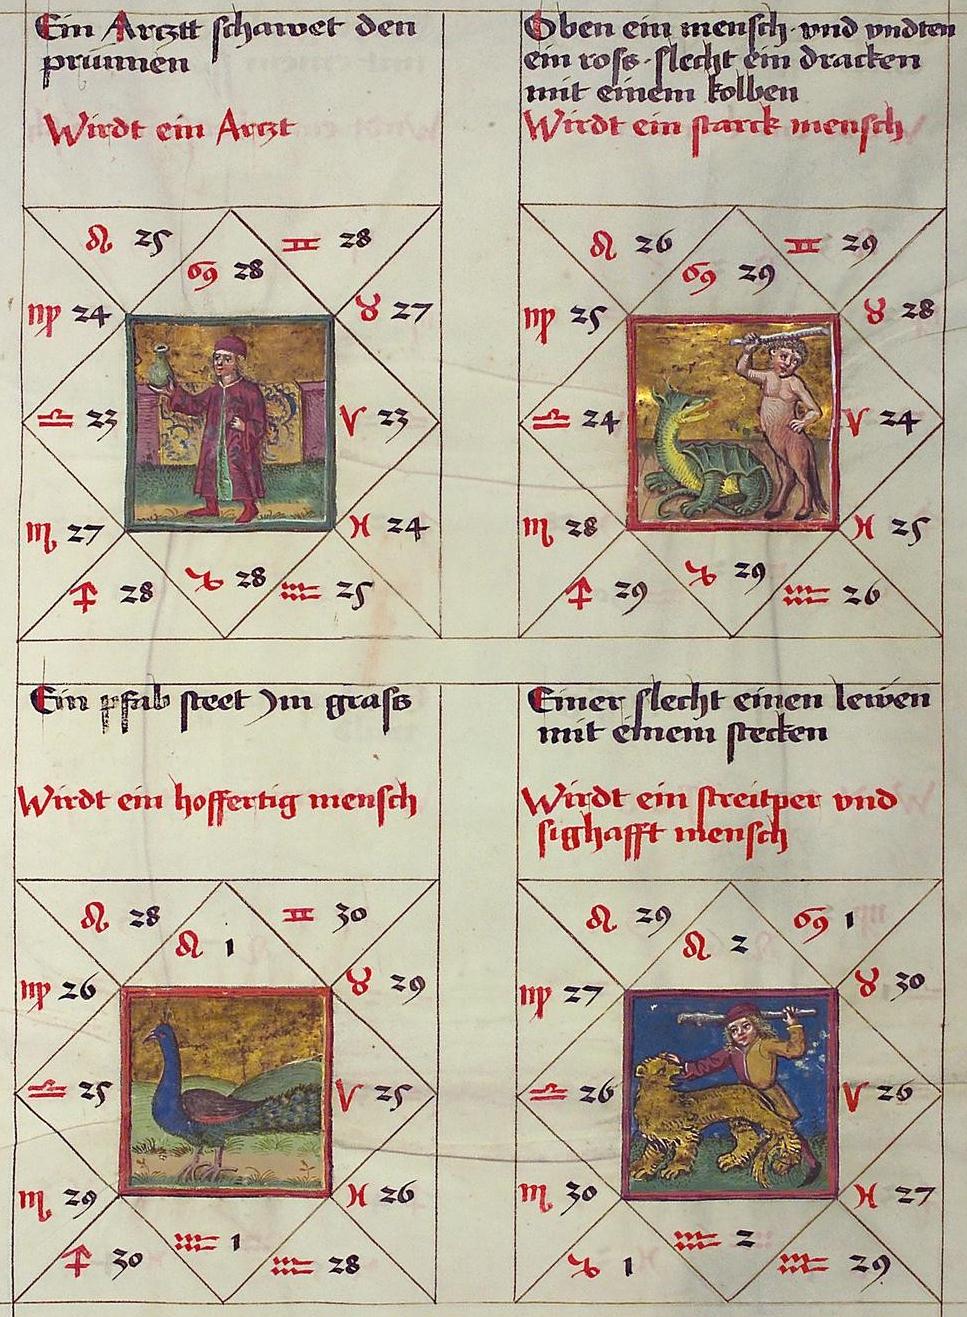 Ein Arcztt schawet den
prünnen
Wirdt ein Arczt
♌ 25
♊ 28
♋ 28
♍ 24
♉ 27
♎ 23
♈ 23
♏ 27
♓ 24
♐ 28
♑ 28
♒ 25
Oben ein mensch · vnd vndten
ein ross · slecht ein dracken
mit einem kolben
Wirdt ein starck mensch
♌ 26
♊ 29
♋ 29
♍ 25
♉ 28
♎ 24
♈ 24
♏ 28
♓ 25
♐ 29
♑ 29
♒ 26
Ein pfab steet Jm grass
Wirdt ein hoffertig mensch
♌ 28
♊ 30
♌ 1
♍ 26
♉ 29
♎ 25
♈ 25
♏ 29
♓ 26
♐ 30
♒ 1
♒ 28
Einer slecht einen lewen
mit einem stecken
Wirdt ein streitper vnd
sighafft mensch
♌ 29
♋ 1
♌ 2
♍ 27
♉ 30
♎ 26
♈ 26
♏ 30
♓ 27
♑ 1
♒ 2
♒ 29